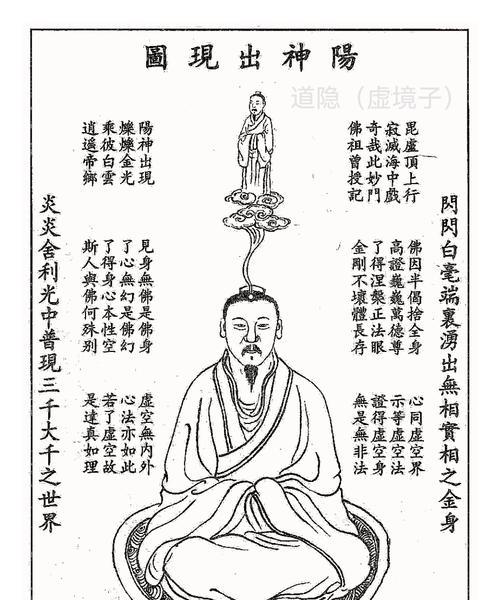 陽神出現圖
道隐（虚境子）
閃閃白毫端裏湧出無相實相之金身
毘盧頂上行
寂滅海中戲
奇哉此妙門
佛祖曾授記
佛因半偈捨全身
高證巍巍萬德尊
了得涅槃正法眼
金剛不壞體長存
心同虛空界
示等虛空法
證得虛空身
無是無非法
陽神出現
爍爍金光
乘彼白雲
逍遙帝鄉
見身無佛是佛身
了心無幻是佛幻
了得身心本性空
斯人與佛何殊別
虛空無內外
心法亦如此
若了虛空故
是達真如理
炎炎舍利光中普現三千大千之世界